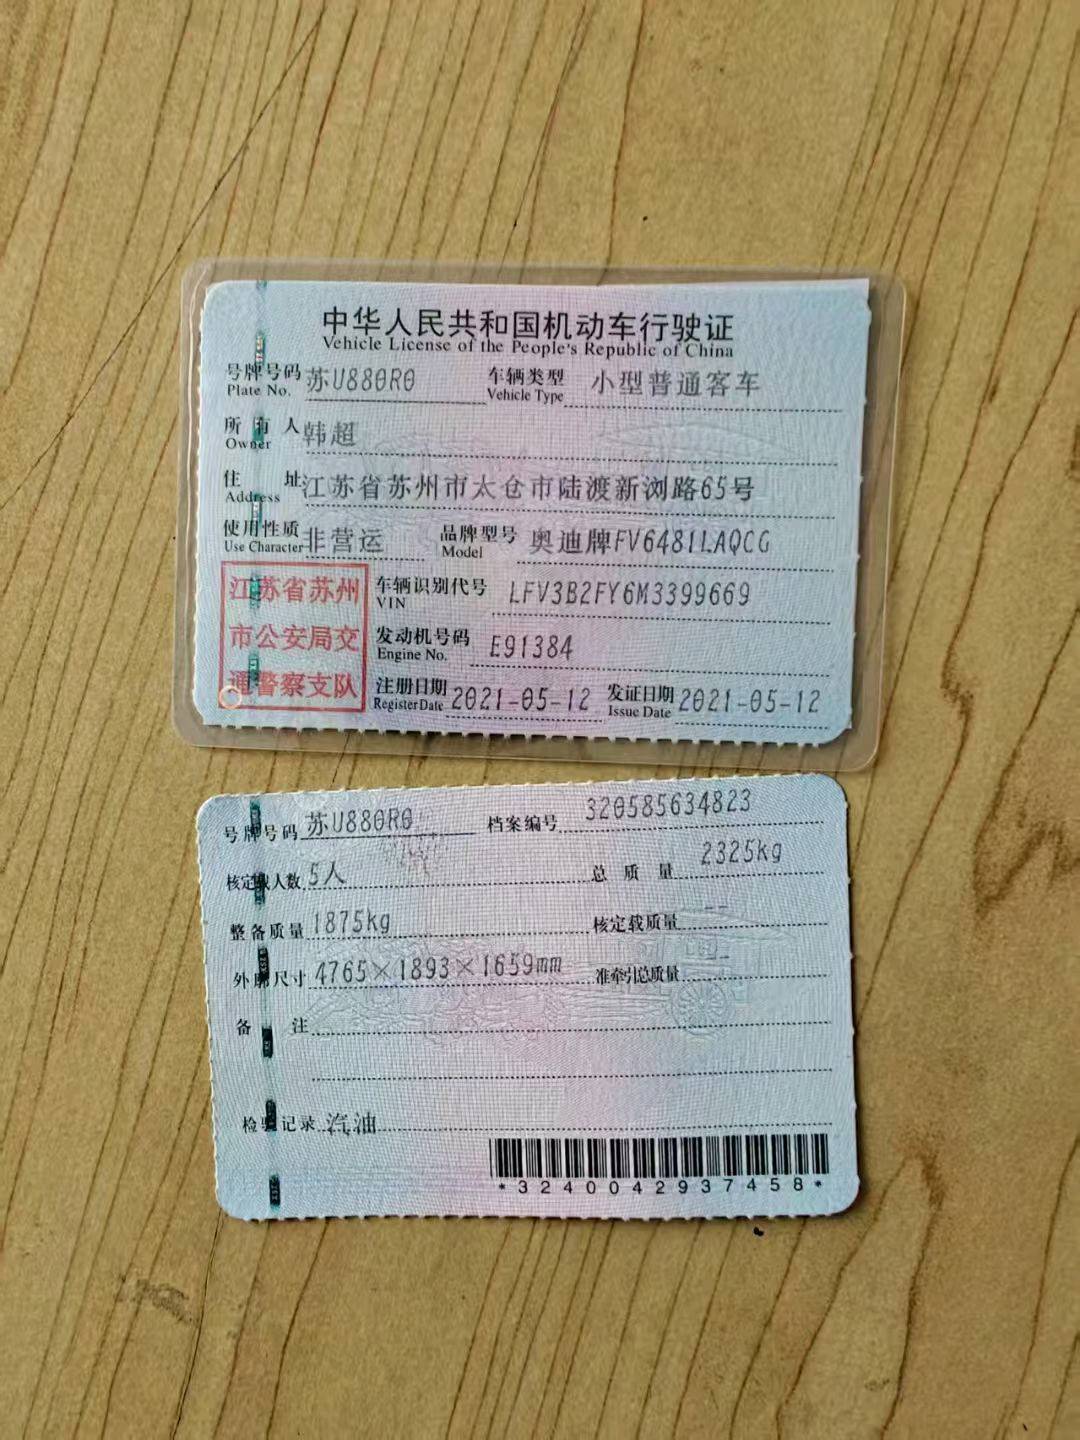 中华人民共和国机动车行驶证
Vehicle License of the People's Republic of China
号牌号码 苏U880R0 车辆类型 小型普通客车
Plate No. Vehicle Type
所有人 韩超
Owner
住址 江苏省苏州市太仓市陆渡新浏路65号
Address
使用性质 非营运 品牌型号 奥迪牌FV6481LAQCG
Use Character Model
江苏省苏州
市公安局交
通警察支队
车辆识别代号 LFV3B2FY6M3399669
VIN
发动机号码 E91384
Engine No.
注册日期 2021-05-12 发证日期 2021-05-12
Register Date Issue Date
号牌号码 苏U880R0 档案编号 320585634823
核定载人数 5人 总质量 2325kg
整备质量 1875kg 核定载质量 --
外廓尺寸 4765×1893×1659mm 准牵引总质量 --
备注
检验记录 汽油
*3240042937458*